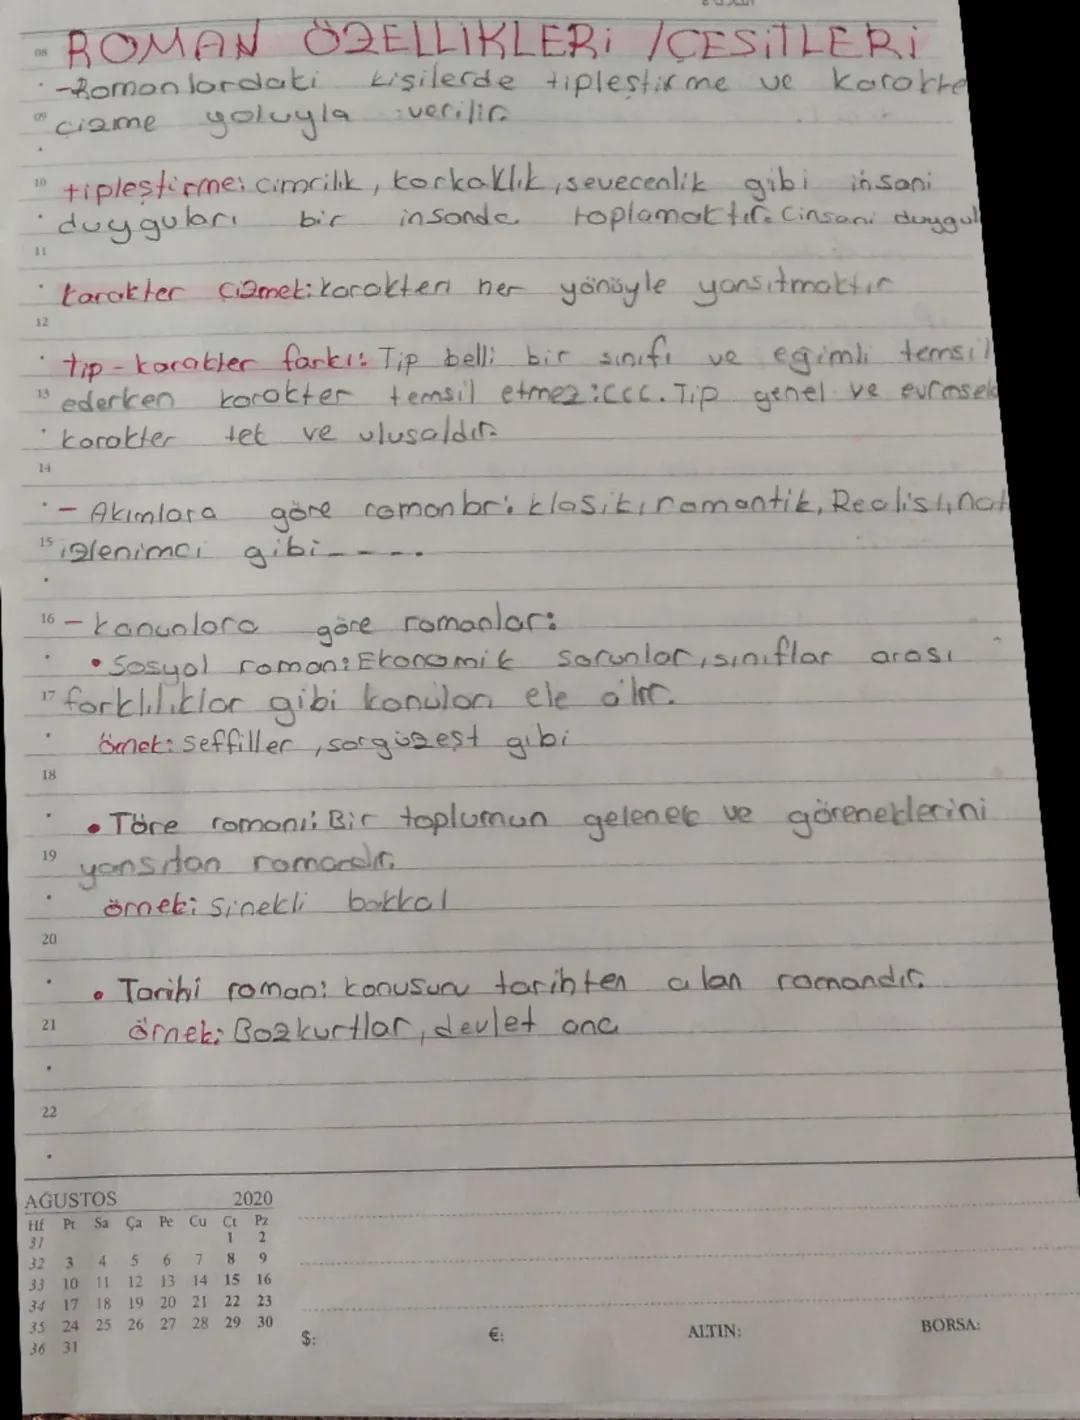 08 ROMAN ÖZELLİKLERİ / ÇEŞİTLERİ
-Romanlardaki kişilerde tipleştirme ve karakte
09 çizme yoluyla verilir.
10 tipleştirme: cimrilik, korkaklık, sevecenlik gibi insani
duyguları bir insanda toplamaktır. Cinsani duygul
11
karakter çizmek: karakteri her yönüyle yansıtmaktır
12
tip - karakter farkı: Tip belli bir sınıfı ve eğimli temsil
13 ederken karakter temsil etmez:ccc. Tip genel ve evrensel
karakter tek ve ulusaldır.
14
- Akımlara göre romanlar: klasik, romantik, Realist, nat
15 izlenimci gibi -----
16 - konunlara göre romanlar:
• Sosyal roman: Ekonomik sorunlar, sınıflar arası
17 farklılıklar gibi konuları ele alır.
örnek: Seffiller, sargüzeşt gibi
18
• Töre romanı: Bir toplumun gelenek ve göreneklerini
19 yansıtan romandır.
örnek: Sinekli bakkal
20
• Tarihi roman: konusunu tarihten alan romandır.
21 örnek: Bozkurtlar, devlet ana
22
AĞUSTOS 2020
Hf Pt Sa Ça Pe Cu Ct Pz
31 1 2
32 3 4 5 6 7 8 9
33 10 11 12 13 14 15 16
34 17 18 19 20 21 22 23
35 24 25 26 27 28 29 30
36 31
$: €: ALTIN: BORSA: